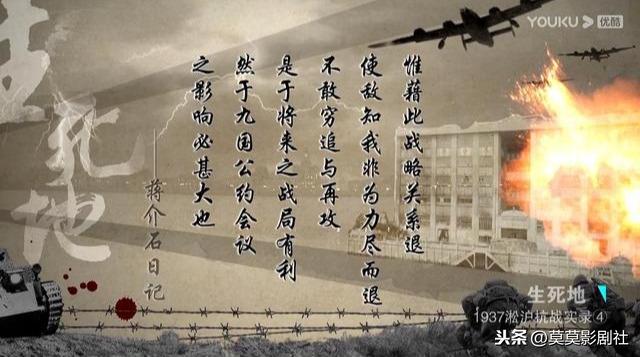 惟藉此战略关系退
使敌知我非为力尽而退
不敢穷追与再攻
是于将来之战局有利
然于九国公约会议
之影响必甚大也
——蒋介石日记
生死地
YOUKU 优酷
生死地
1937淞沪抗战实录④
头条 @莫莫影剧社